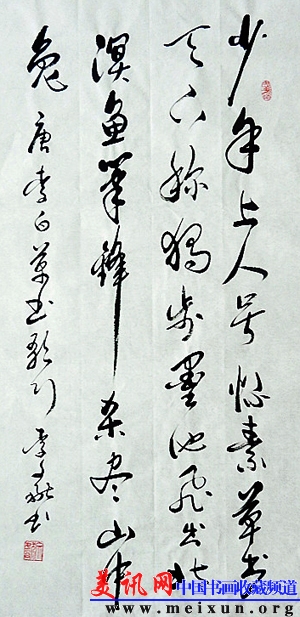 少年上人号怀素草书
天下称独步墨池飞出北
溟鱼笔锋杀尽山中
兔 唐李白草书歌行 李
美讯网 中国书画收藏频道
www.meixun.org